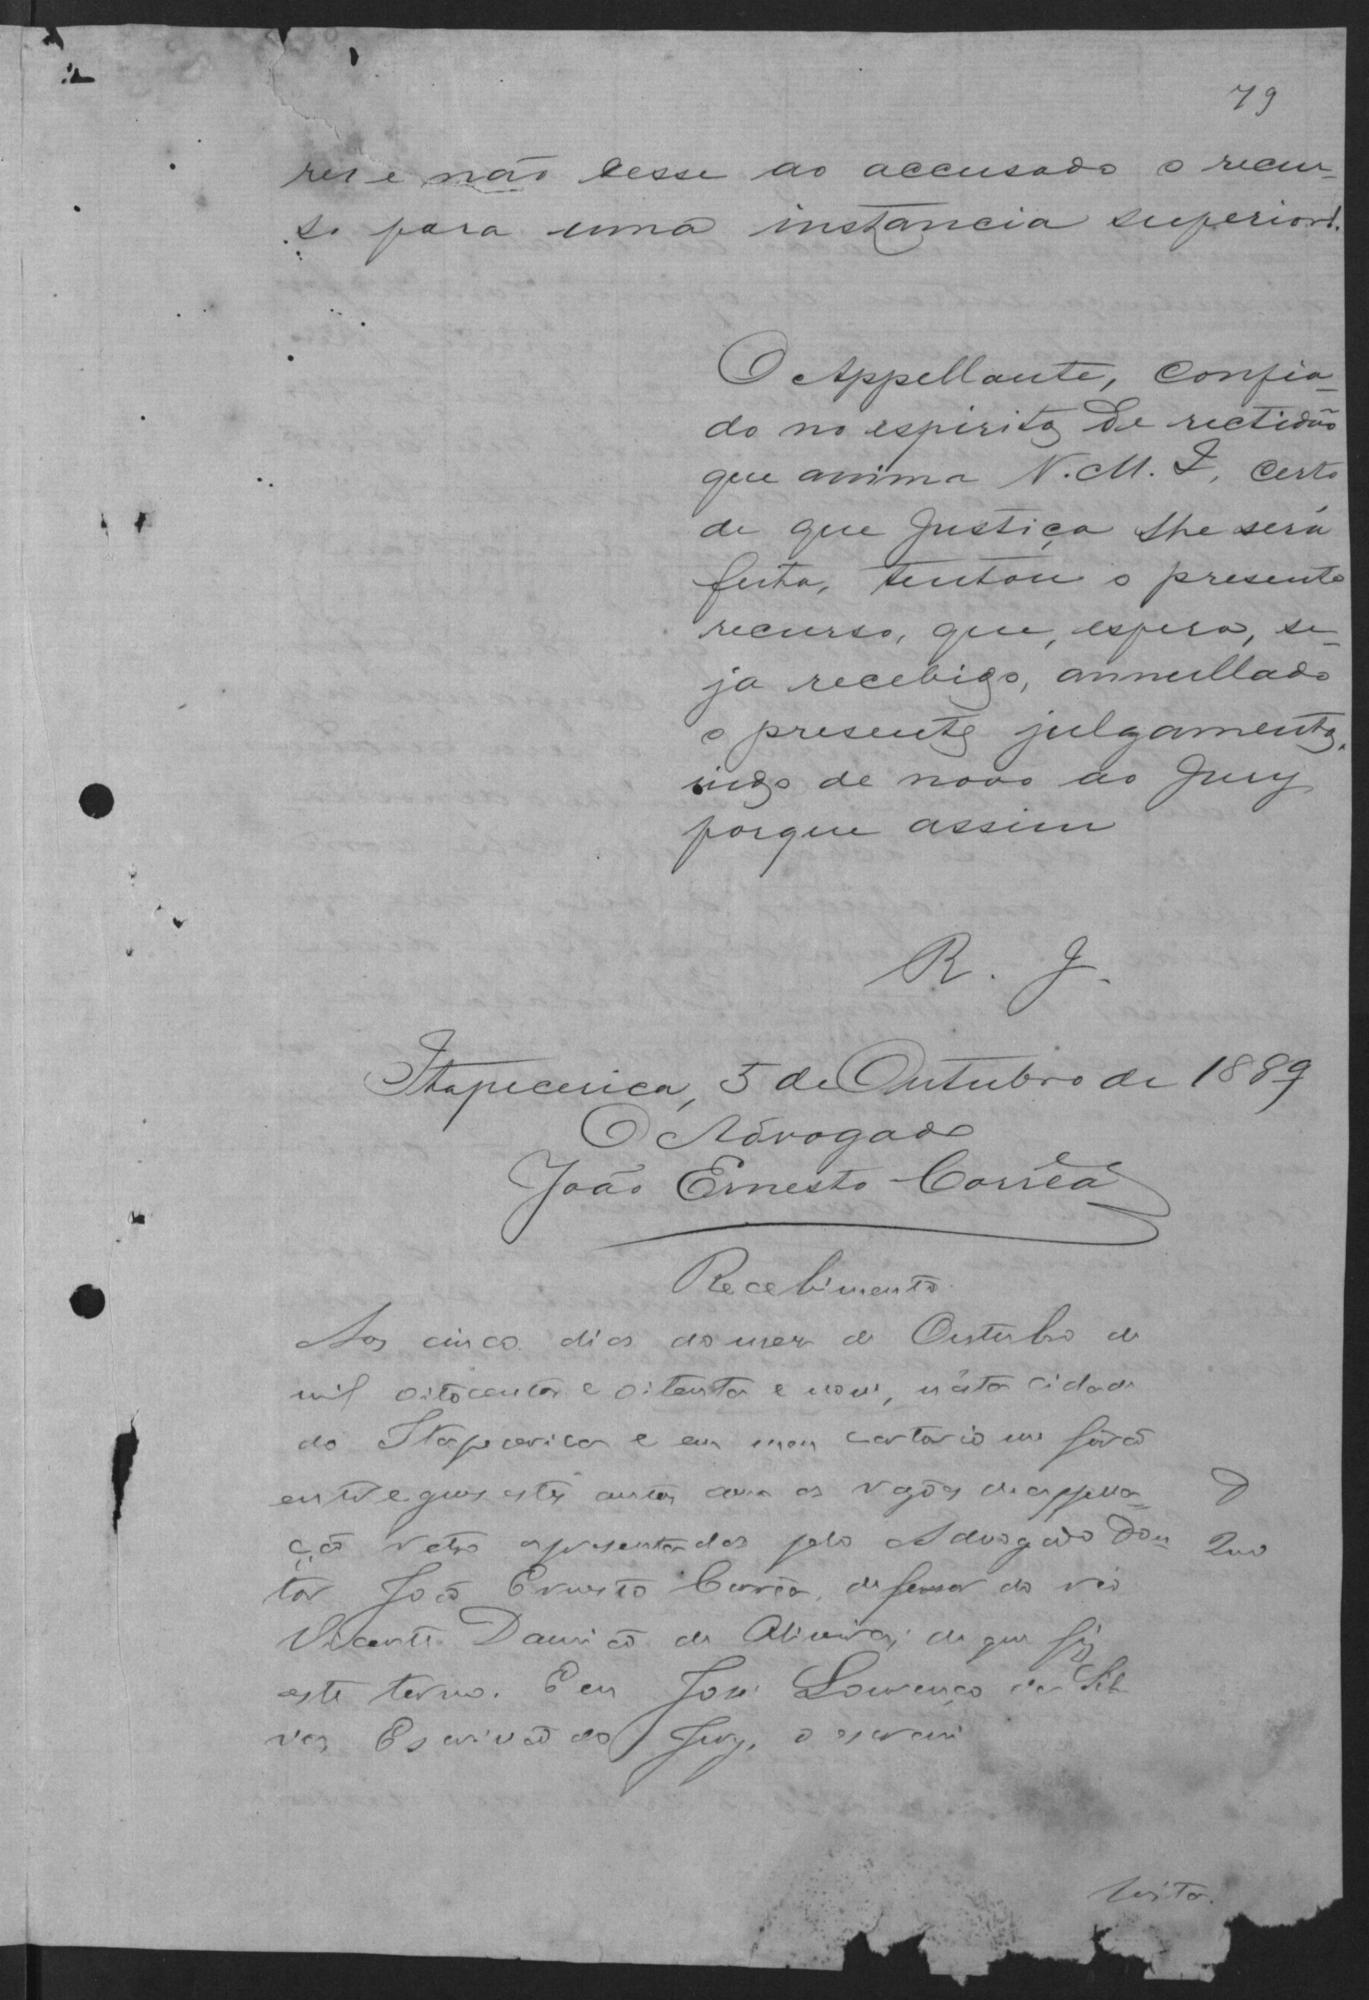 79
res e não desse ao accusado o recur-
so para uma instancia superior!
O Appellante, confia-
do no espirito de rectidão
que anima V. M. I, certo
de que Justiça lhe será
feita, tentou o presente
recurso, que, espera, se-
ja recebido, annullado
o presente julgamento,
indo de novo ao Jury
porque assim
R. J.
Itapecerica, 5 de Outubro de 1889
O Advogado
João Ernesto Corrêa
Recebimento
Aos cinco dias do mez de Outubro de
mil oitocentos e oitenta e nove, nésta cidade
do Itapecerica e em meu cartorio me forão
entregues estes autos com as rasões de appella-
ção retro apresentadas pelo Advogado Dou-
tor João Ernesto Corrêa, defensor do réo
Vicente Damião de Oliveira; de que fiz
este termo. Eu José Lourenço da Sil-
va Escrivão do Jury, o escrevi
Visto.